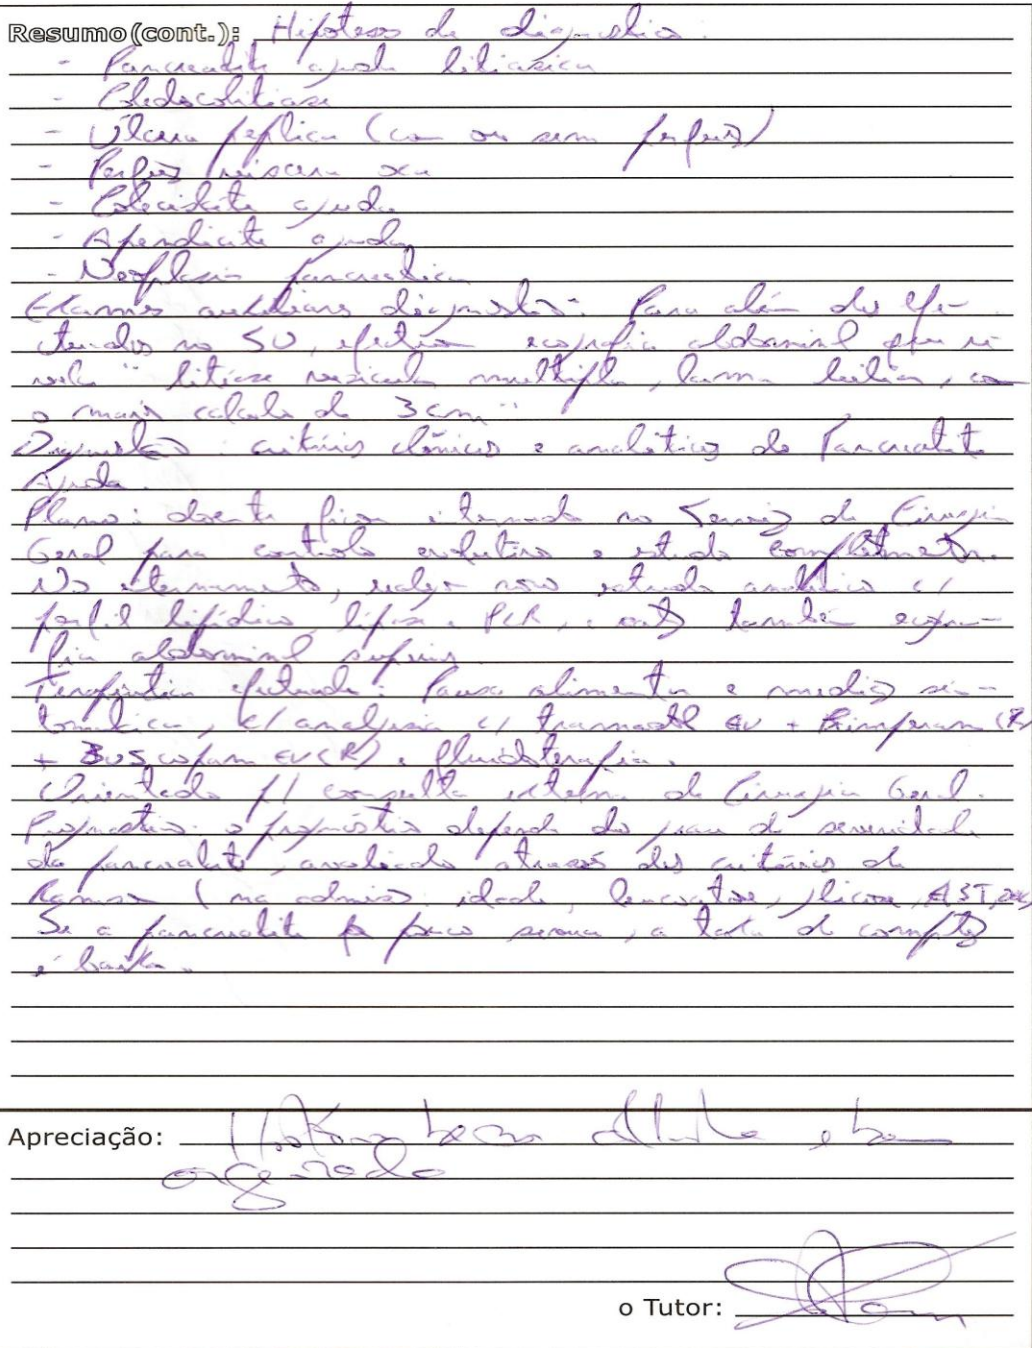 Resumo(cont.): Hipóteses de diagnóstico:
- Pancreatite aguda litiásica
- Coledocolitíase
- Úlcera péptica (com ou sem perfuração)
- Perfuração víscera oca
- Colecistite aguda
- Apendicite aguda
- Neoplasia pancreática
Exames auxiliares diagnóstico: Para além dos efe-
ctuados no SU, efectuou ecografia abdominal que re-
vela "litíase vesicular múltipla, lama biliar, com
o maior cálculo de 3 cm"
Diagnóstico: critérios clínicos e analíticos de Pancreatite
Aguda.
Plano: doente ficou internado no Serviço de Cirurgia
Geral para controlo evolutivo e estudo complementar.
No internamento, realizou novo estudo analítico c/
perfil lipídico, lipase e PCR, e também ecogra-
fia abdominal superior.
Terapêutica efectuada: Pausa alimentar e medicação sin-
tomática, c/ analgesia c/ tramadol EV + Primperam (R)
+ Buscopam EV (R) e fluidoterapia.
Orientado p/ consulta externa de Cirurgia Geral.
Prognóstico: o prognóstico depende do grau de severidade
da pancreatite, avaliado através dos critérios de
Ranson (na admissão: idade, leucocitose, glicose, AST,
Se a pancreatite for pouco severa, a taxa de complicações
é baixa.
Apreciação: História bem colhida e bem
organizada
o Tutor: